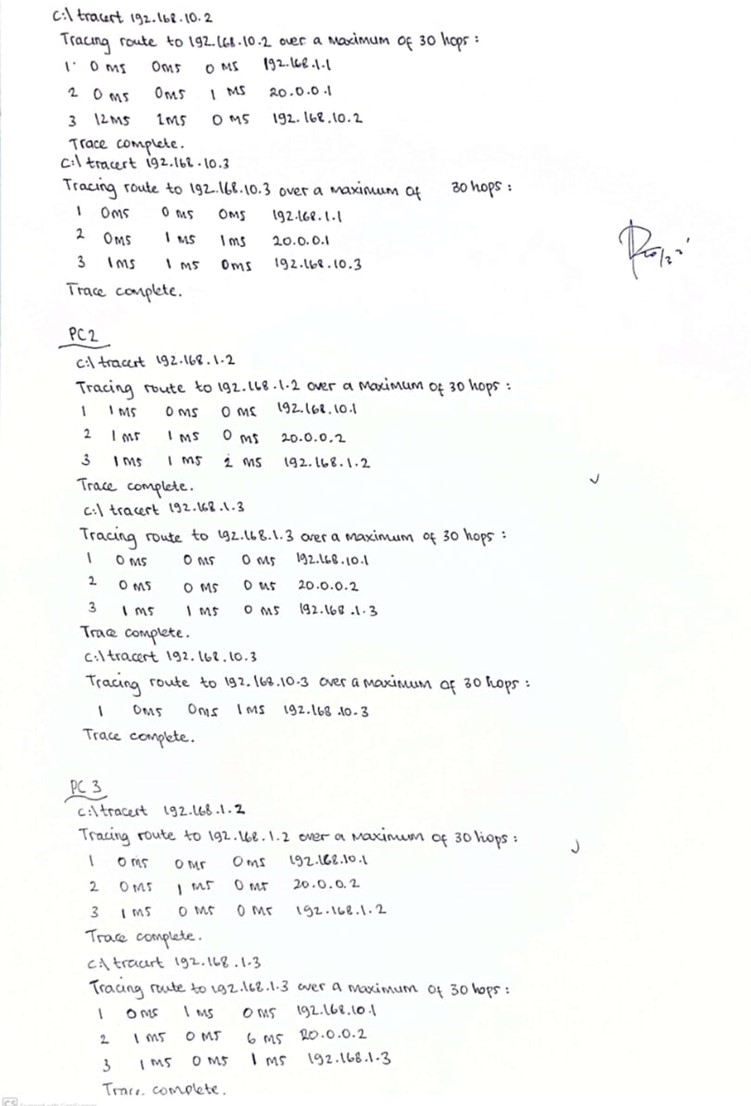 C:\ tracert 192.168.10.2
Tracing route to 192.168.10.2 over a maximum of 30 hops :
1 0 ms 0ms 0 ms 192.168.1.1
2 0 ms 0ms 1 ms 20.0.0.1
3 12ms 1ms 0 ms 192.168.10.2
Trace complete.
C:\ tracert 192.168.10.3
Tracing route to 192.168.10.3 over a maximum of 30 hops :
1 0ms 0 ms 0ms 192.168.1.1
2 0ms 1 ms 1ms 20.0.0.1
3 1ms 1 ms 0ms 192.168.10.3
Trace complete.
PC2
c:\ tracert 192.168.1.2
Tracing route to 192.168.1.2 over a maximum of 30 hops :
1 1ms 0ms 0 ms 192.168.10.1
2 1ms 1 ms 0 ms 20.0.0.2
3 1ms 1 ms 2 ms 192.168.1.2
Trace complete.
c:\ tracert 192.168.1.3
Tracing route to 192.168.1.3 over a maximum of 30 hops :
1 0 ms 0 ms 0 ms 192.168.10.1
2 0 ms 0 ms 0 ms 20.0.0.2
3 1 ms 1 ms 0 ms 192.168.1.3
Trace complete.
c:\ tracert 192.168.10.3
Tracing route to 192.168.10.3 over a maximum of 30 hops :
1 0ms 0ms 1ms 192.168.10.3
Trace complete.
PC 3
c:\ tracert 192.168.1.2
Tracing route to 192.168.1.2 over a maximum of 30 hops :
1 0 ms 0 ms 0 ms 192.168.10.1
2 0 ms 1 ms 0 ms 20.0.0.2
3 1 ms 0 ms 0 ms 192.168.1.2
Trace complete.
c:\ tracert 192.168.1.3
Tracing route to 192.168.1.3 over a maximum of 30 hops :
1 0 ms 1 ms 0 ms 192.168.10.1
2 1 ms 0 ms 6 ms 20.0.0.2
3 1 ms 0 ms 1 ms 192.168.1.3
Trace complete.
CS